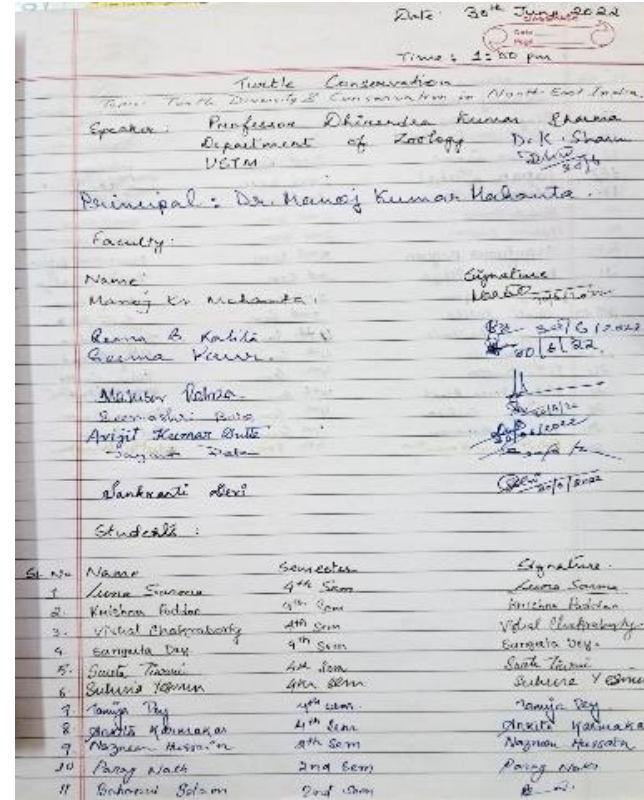 Date: 30th June, 2022
Time: 1:00 pm
Turtle Conservation
Topic: Turtle Diversity & Conservation in North-East India.
Speaker: Professor Dhirendra Kumar Sharma
Department of Zoology D.K. Sharma
USTM
Principal: Dr. Manoj Kumar Mahanta.
Faculty:
Name: Signature
Manoj Kr Mahanta.
B. Kalita 30/6/2022
Kaur. 30/6/22
Avijit Kumar Dutta 30/06/2022
Sankranti Devi 30/6/2022
Students:
Sl. No Name Semester Signature.
1 Luna Sarma 4th Sem Luna Sarma
2. Krishna Poddar 4th Sem Krishna Poddar
3. Vishal Chakraborty 4th Sem Vishal Chakraborty
4. Sangita Dey 4th Sem Sangita Dey.
5. Tiwari 4th Sem Tiwari
6. 4th Sem
7. Tanuja Dey 4th Sem Tanuja Dey
8. Ankita Karmakar 4th Sem Ankita Karmaka
9 Naznean Hussain 4th Sem Naznean Hussain
10 Parag Nath 2nd Sem Parag Nath
11 2nd Sem